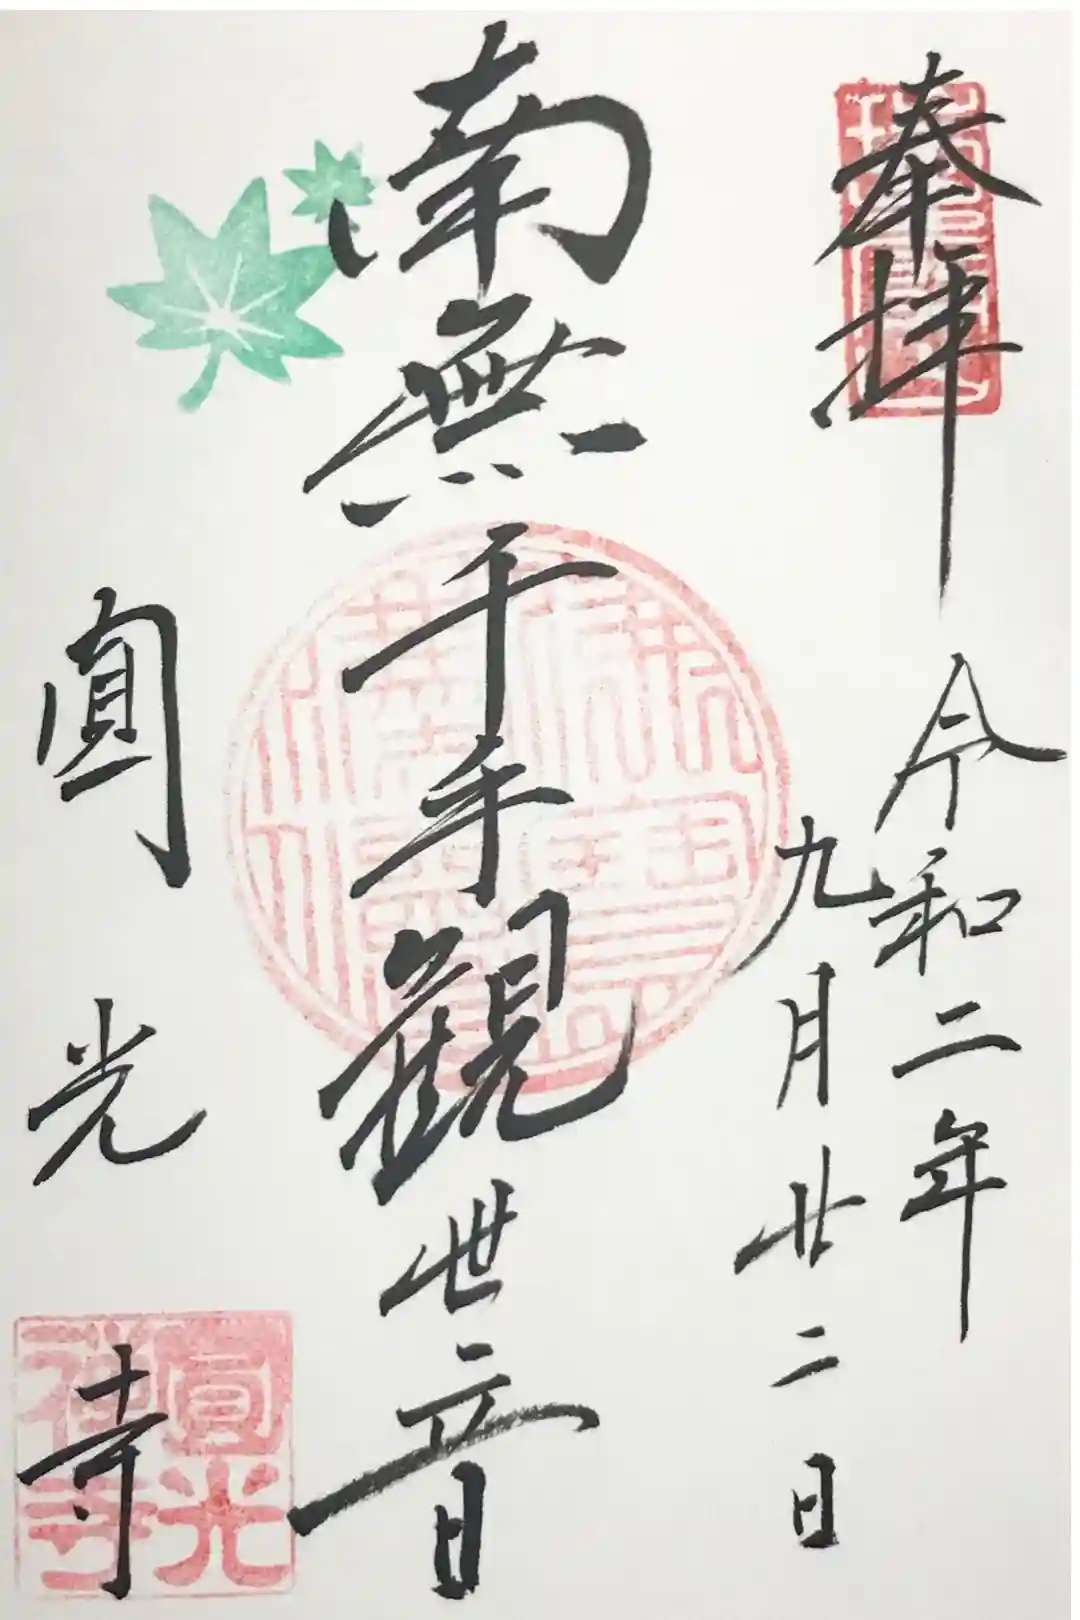 奉拝
令和二年
九月廿二日
南無千手観世音
圓光寺
圓光
禅寺